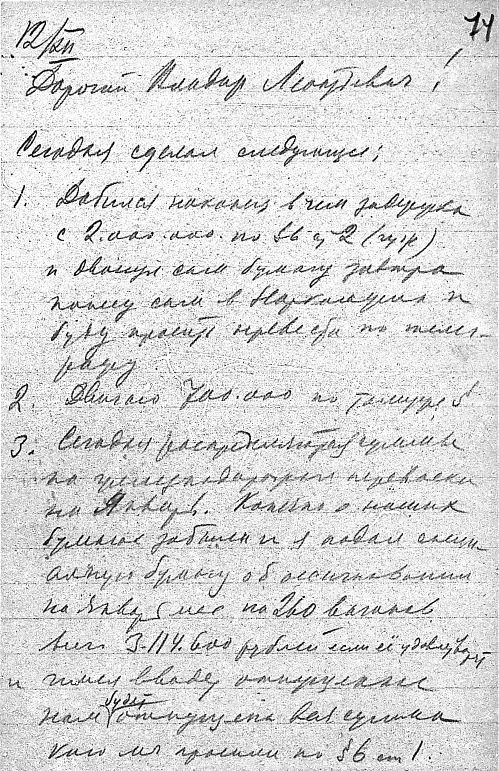 74
12/XII
Дорогой Владимир Леонтьевич!
Сегодня сделал следующее:
1. Добился наконец в чем задержка
с 2.000.000. по §6 ст 2
и двинул сам бумагу завтра
понесу сам в Наркомфин и
буду просить перевести по телег-
рафу
2. Двигаю 700.000 по тому же §
3. Сегодня распределяются суммы
на перевозки
на Январь. Конечно о наших
бумагах забыли и я подал специ-
альную бумагу об ассигновании
на январь мес на 260 вагонов
всего 3.114.600 рублей если её удовлетворят
и имея ввиду
нам будет отпущена вся сумма
кою мы просили по §6 ст 1.